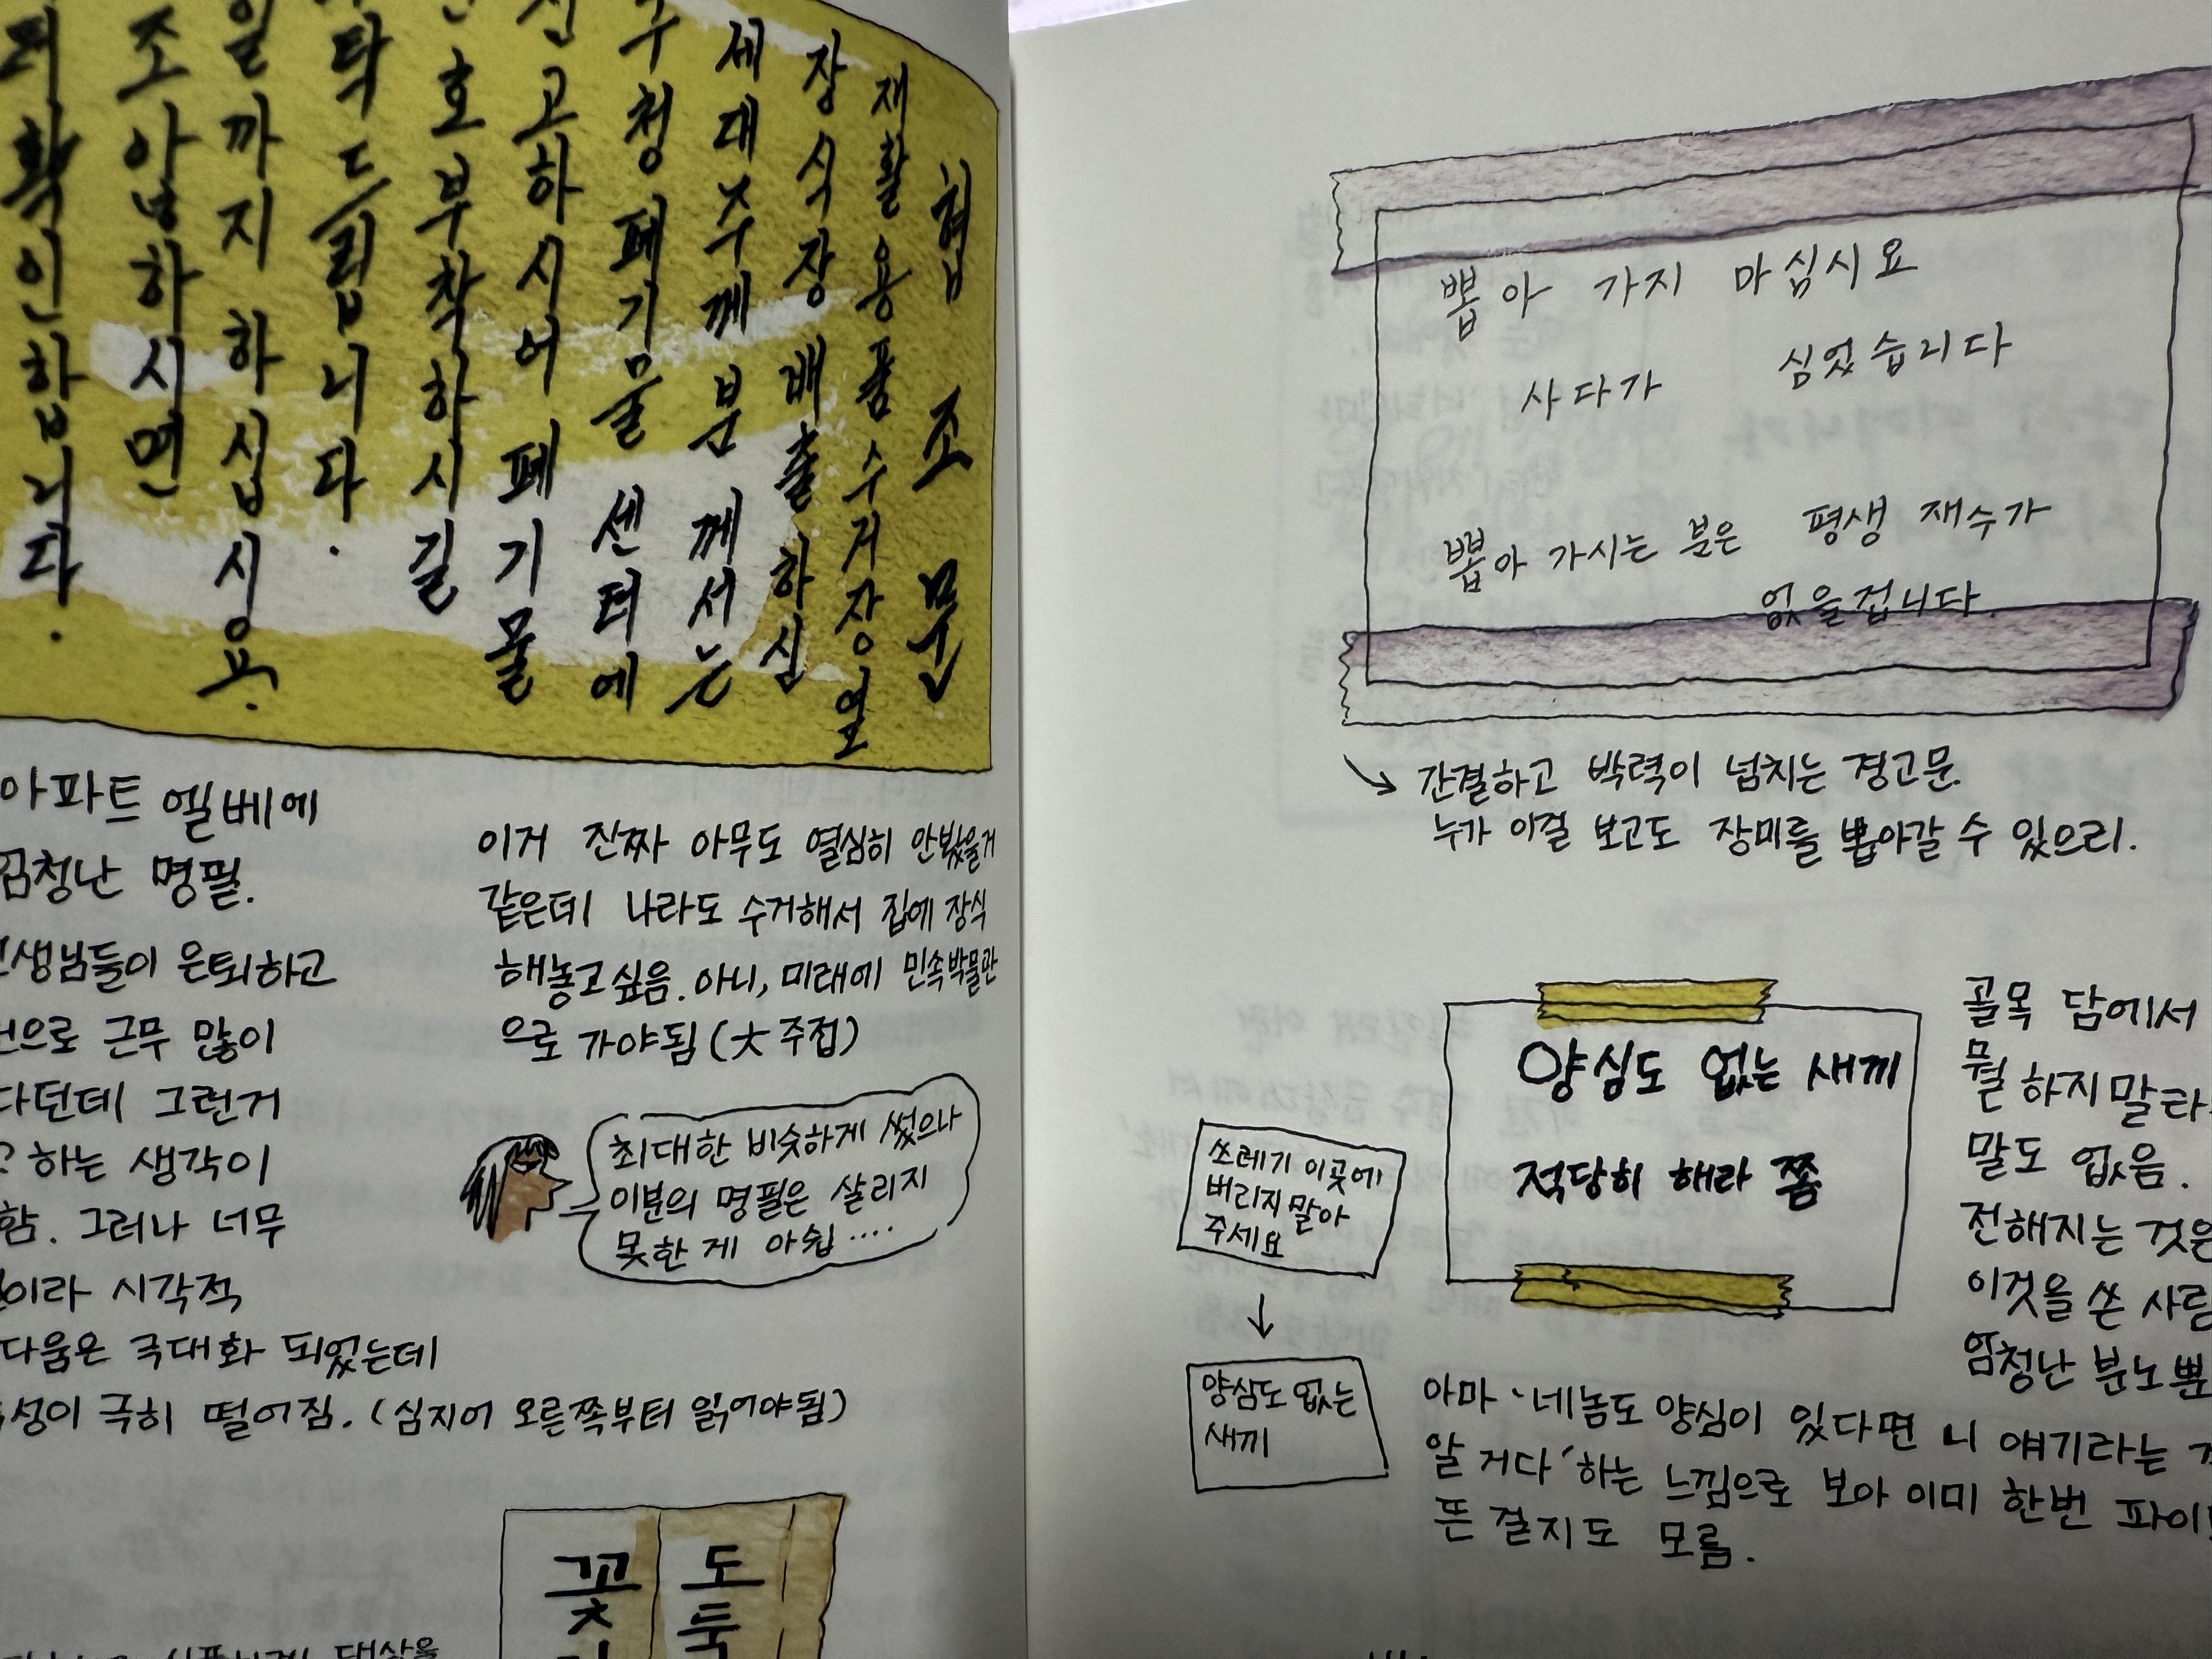 협조문
재활용품 수거장 옆
장식장 배출하신
세대주께 분께서는
구청 폐기물 센터에
신고하시어 폐기물
호 부착하시길
탁드립니다.
일까지 하십시요.
조아남하시면
확인합니다.
아파트 엘베에
엄청난 명필.
선생님들이 은퇴하고
으로 근무 많이
다던데 그런거
? 하는 생각이
함. 그러나 너무
이라 시각적
다움은 극대화 되었는데
성이 극히 떨어짐. (심지어 오른쪽부터 읽어야됨)
이거 진짜 아무도 열심히 안봤을거
같은데 나라도 수거해서 집에 장식
해놓고싶음. 아니, 미래에 민속박물관
으로 가야됨 (大 주접)
최대한 비슷하게 썼으나
이분의 명필은 살리지
못한 게 아쉽....
꽃
도
둑
대상을
뽑아 가지 마십시요
사다가 심었습니다
뽑아 가시는 분은 평생 재수가
없을겁니다.
간결하고 박력이 넘치는 경고문.
누가 이걸 보고도 장미를 뽑아갈 수 있으리.
양심도 없는 새끼
적당히 해라 쫌
쓰레기 이곳에
버리지말아
주세요
양심도 없는
새끼
골목 담에서
뭘 하지말라
말도 없음.
전해지는 것은
이것을 쓴 사람
엄청난 분노뿐
아마 '네놈도 양심이 있다면 니 얘기라는
알 거다' 하는 느낌으로 보아 이미 한번 파이
뜬 걸지도 모름.